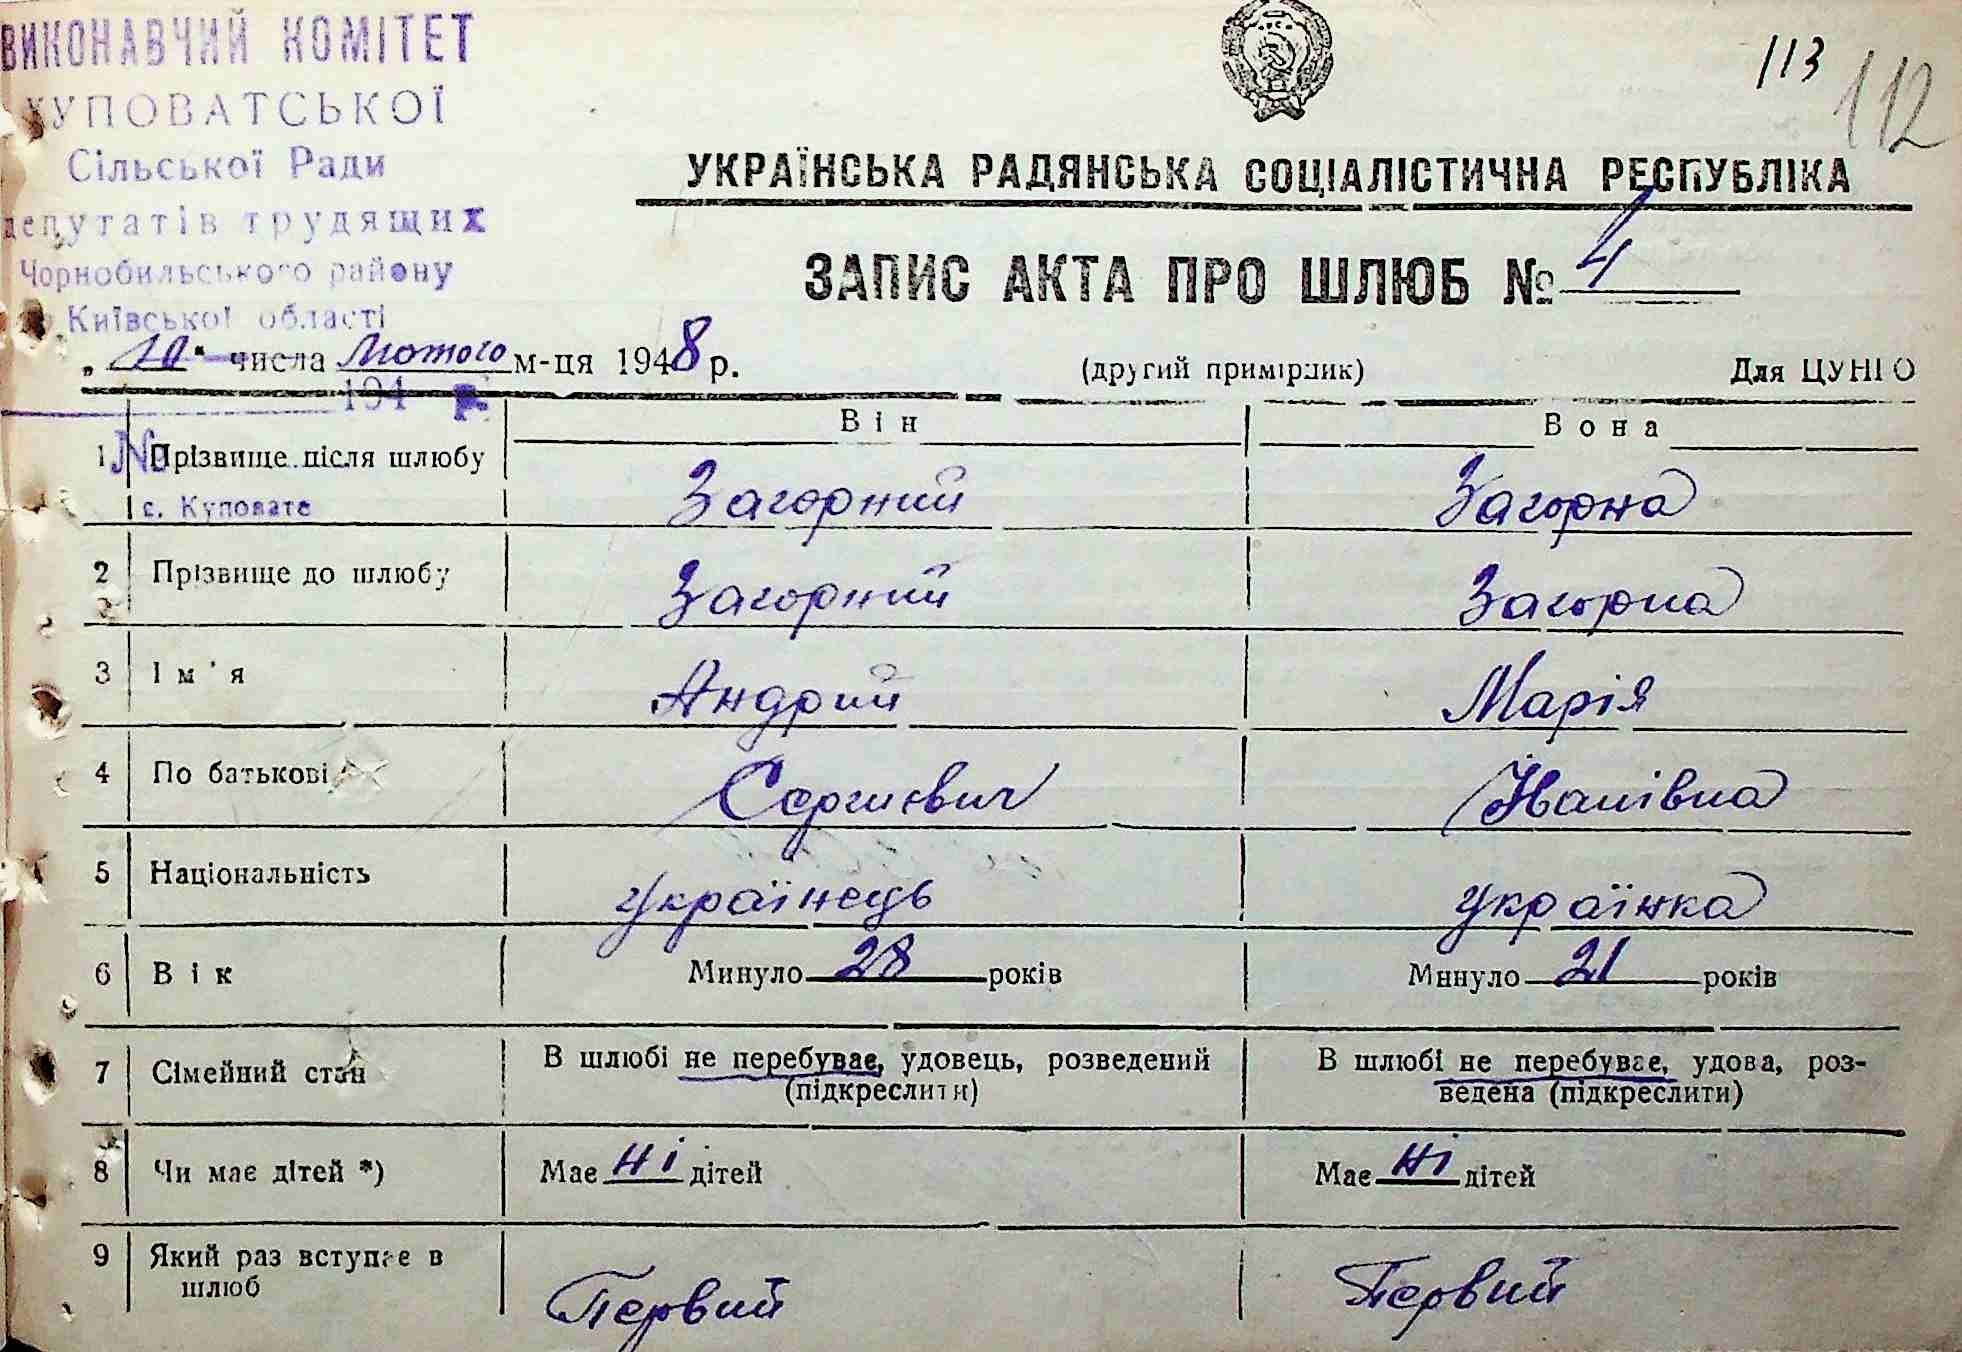 ВИКОНАВЧИЙ КОМІТЕТ
КУПОВАТСЬКОЇ
Сільської Ради
депутатів трудящих
Чорнобильського району
Київської області
194 р.
№
с. Куповате
113
112
УКРАЇНСЬКА РАДЯНСЬКА СОЦІАЛІСТИЧНА РЕСПУБЛІКА
ЗАПИС АКТА ПРО ШЛЮБ № 4
„10" числа Лютого м-ця 1948 р. (другий примірник) Для ЦУНГО
Він Вона
1 Прізвище після шлюбу Загорний Загорна
2 Прізвище до шлюбу Загорний Загорна
3 Ім'я Андрий Марія
4 По батькові Сергиєвич Іванівна
5 Національність Українець Українка
6 Вік Минуло 28 років Минуло 21 років
7 Сімейний стан В шлюбі не перебуває, удовець, розведений В шлюбі не перебуває, удова, роз-
(підкреслити) ведена (підкреслити)
8 Чи має дітей *) Має ні дітей Має ні дітей
9 Який раз вступає в
шлюб Первий Первий